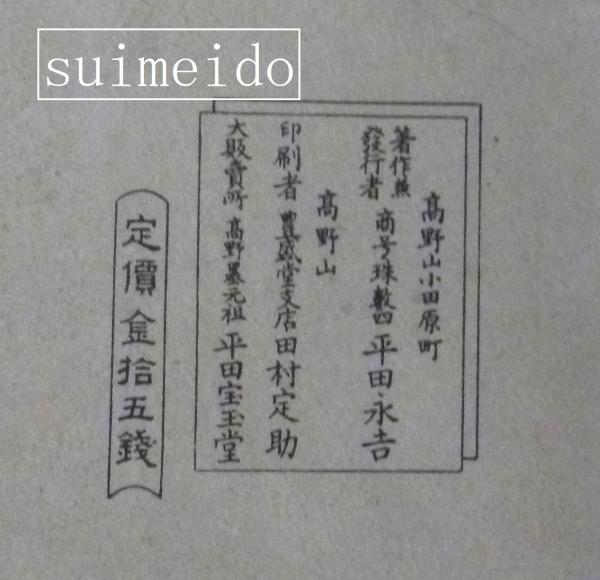 suimeido
高野山小田原町
著作兼
發行者 商号珠數四 平田永吉
高野山
印刷者 豊盛堂支店 田村定助
大販賣所 高野墨元祖 平田宝玉堂
定價金拾五錢